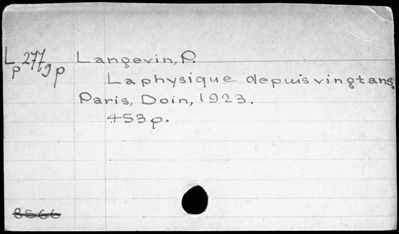 Lp 277/9p Langevin, P.
La physique depuis vingt ans.
Paris, Doin, 1923.
453p.
8566